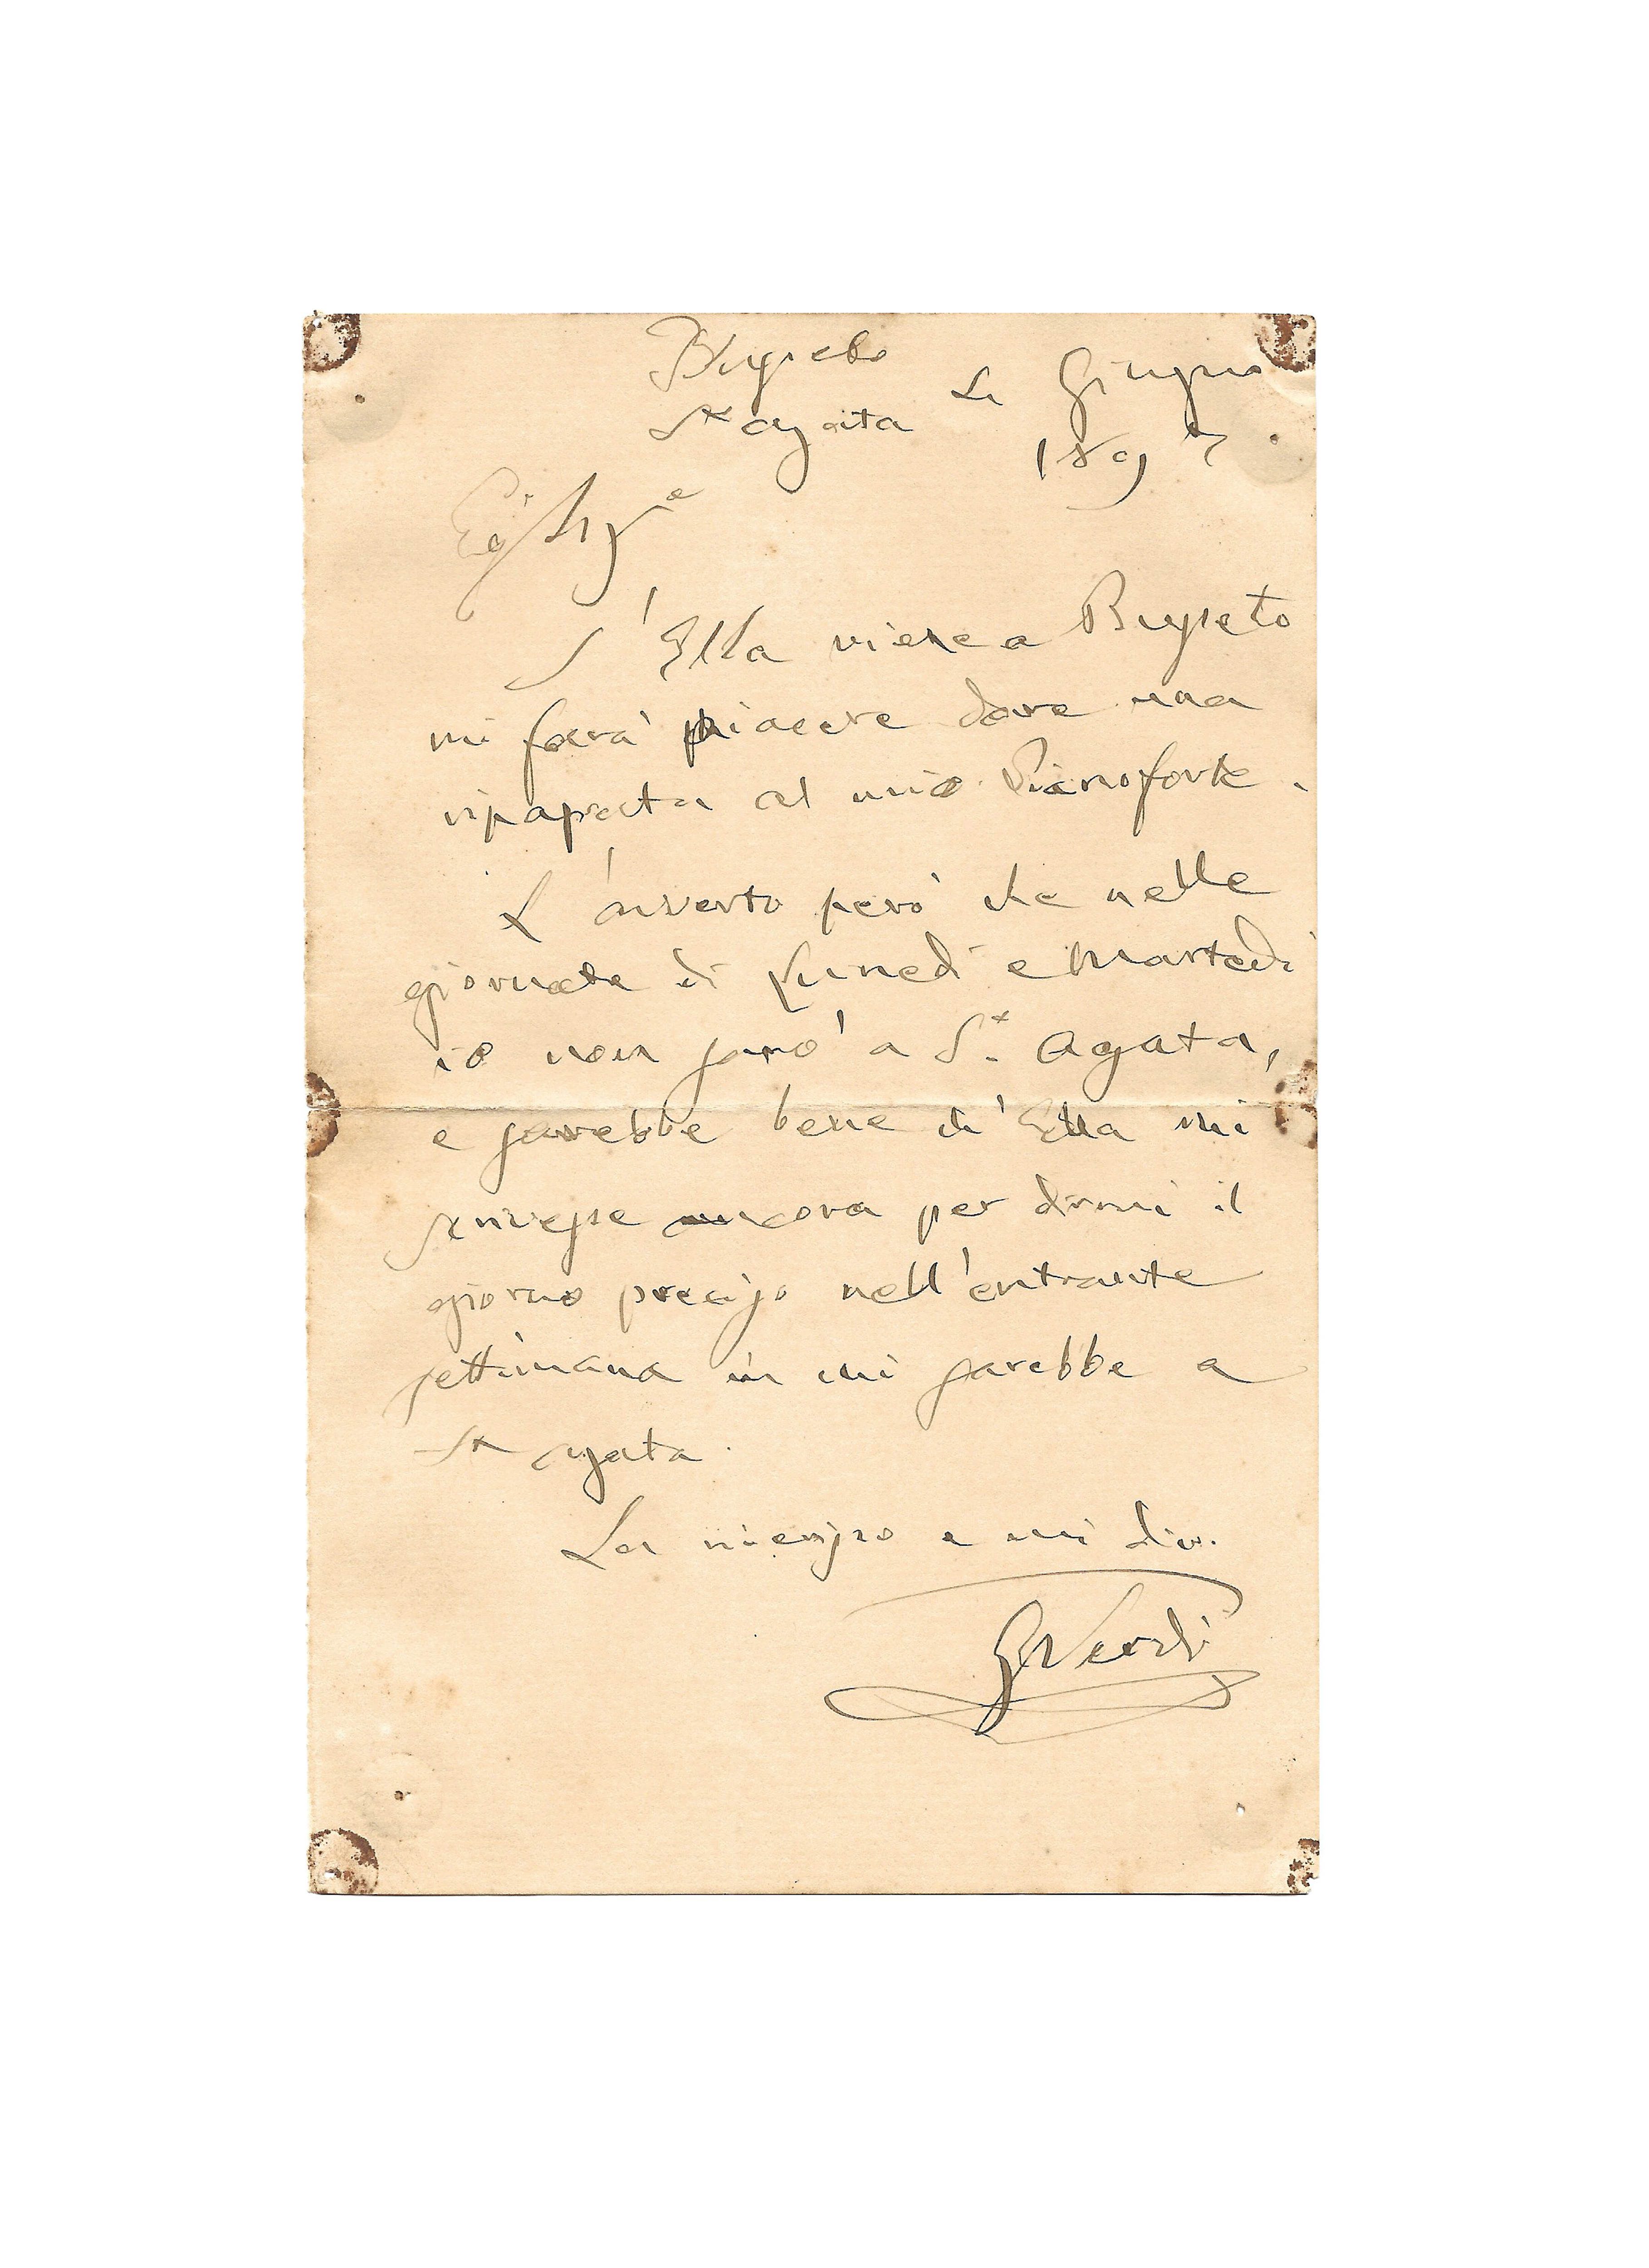 Busseto
Sta Agata Li Giugno
1897
Eg. Sigre
S'Ella viene a Busseto
mi farà piacere dare una
ripassata al mio Pianoforte.
L'avverto però che nelle
giornate di Lunedì e Martedì
io non sarò a Sa. Agata,
e sarebbe bene ch'Ella mi
scrivesse ancora per dirmi il
giorno preciso nell'entrante
settimana in cui sarebbe a
Sta Agata.
La riverisco e mi dico.
GVerdi